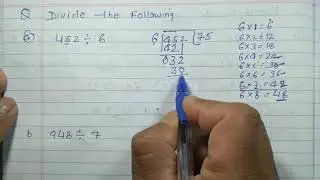 Q Divide the Following
a 462 ÷ 6
6 462 75
42
032
30
b 948 ÷ 7
6 x 1 = 6
6 x 2 = 12
6 x 3 = 18
6 x 4 = 24
6 x 5 = 30
6 x 6 = 36
6 x 7 = 42
6 x 8 = 48